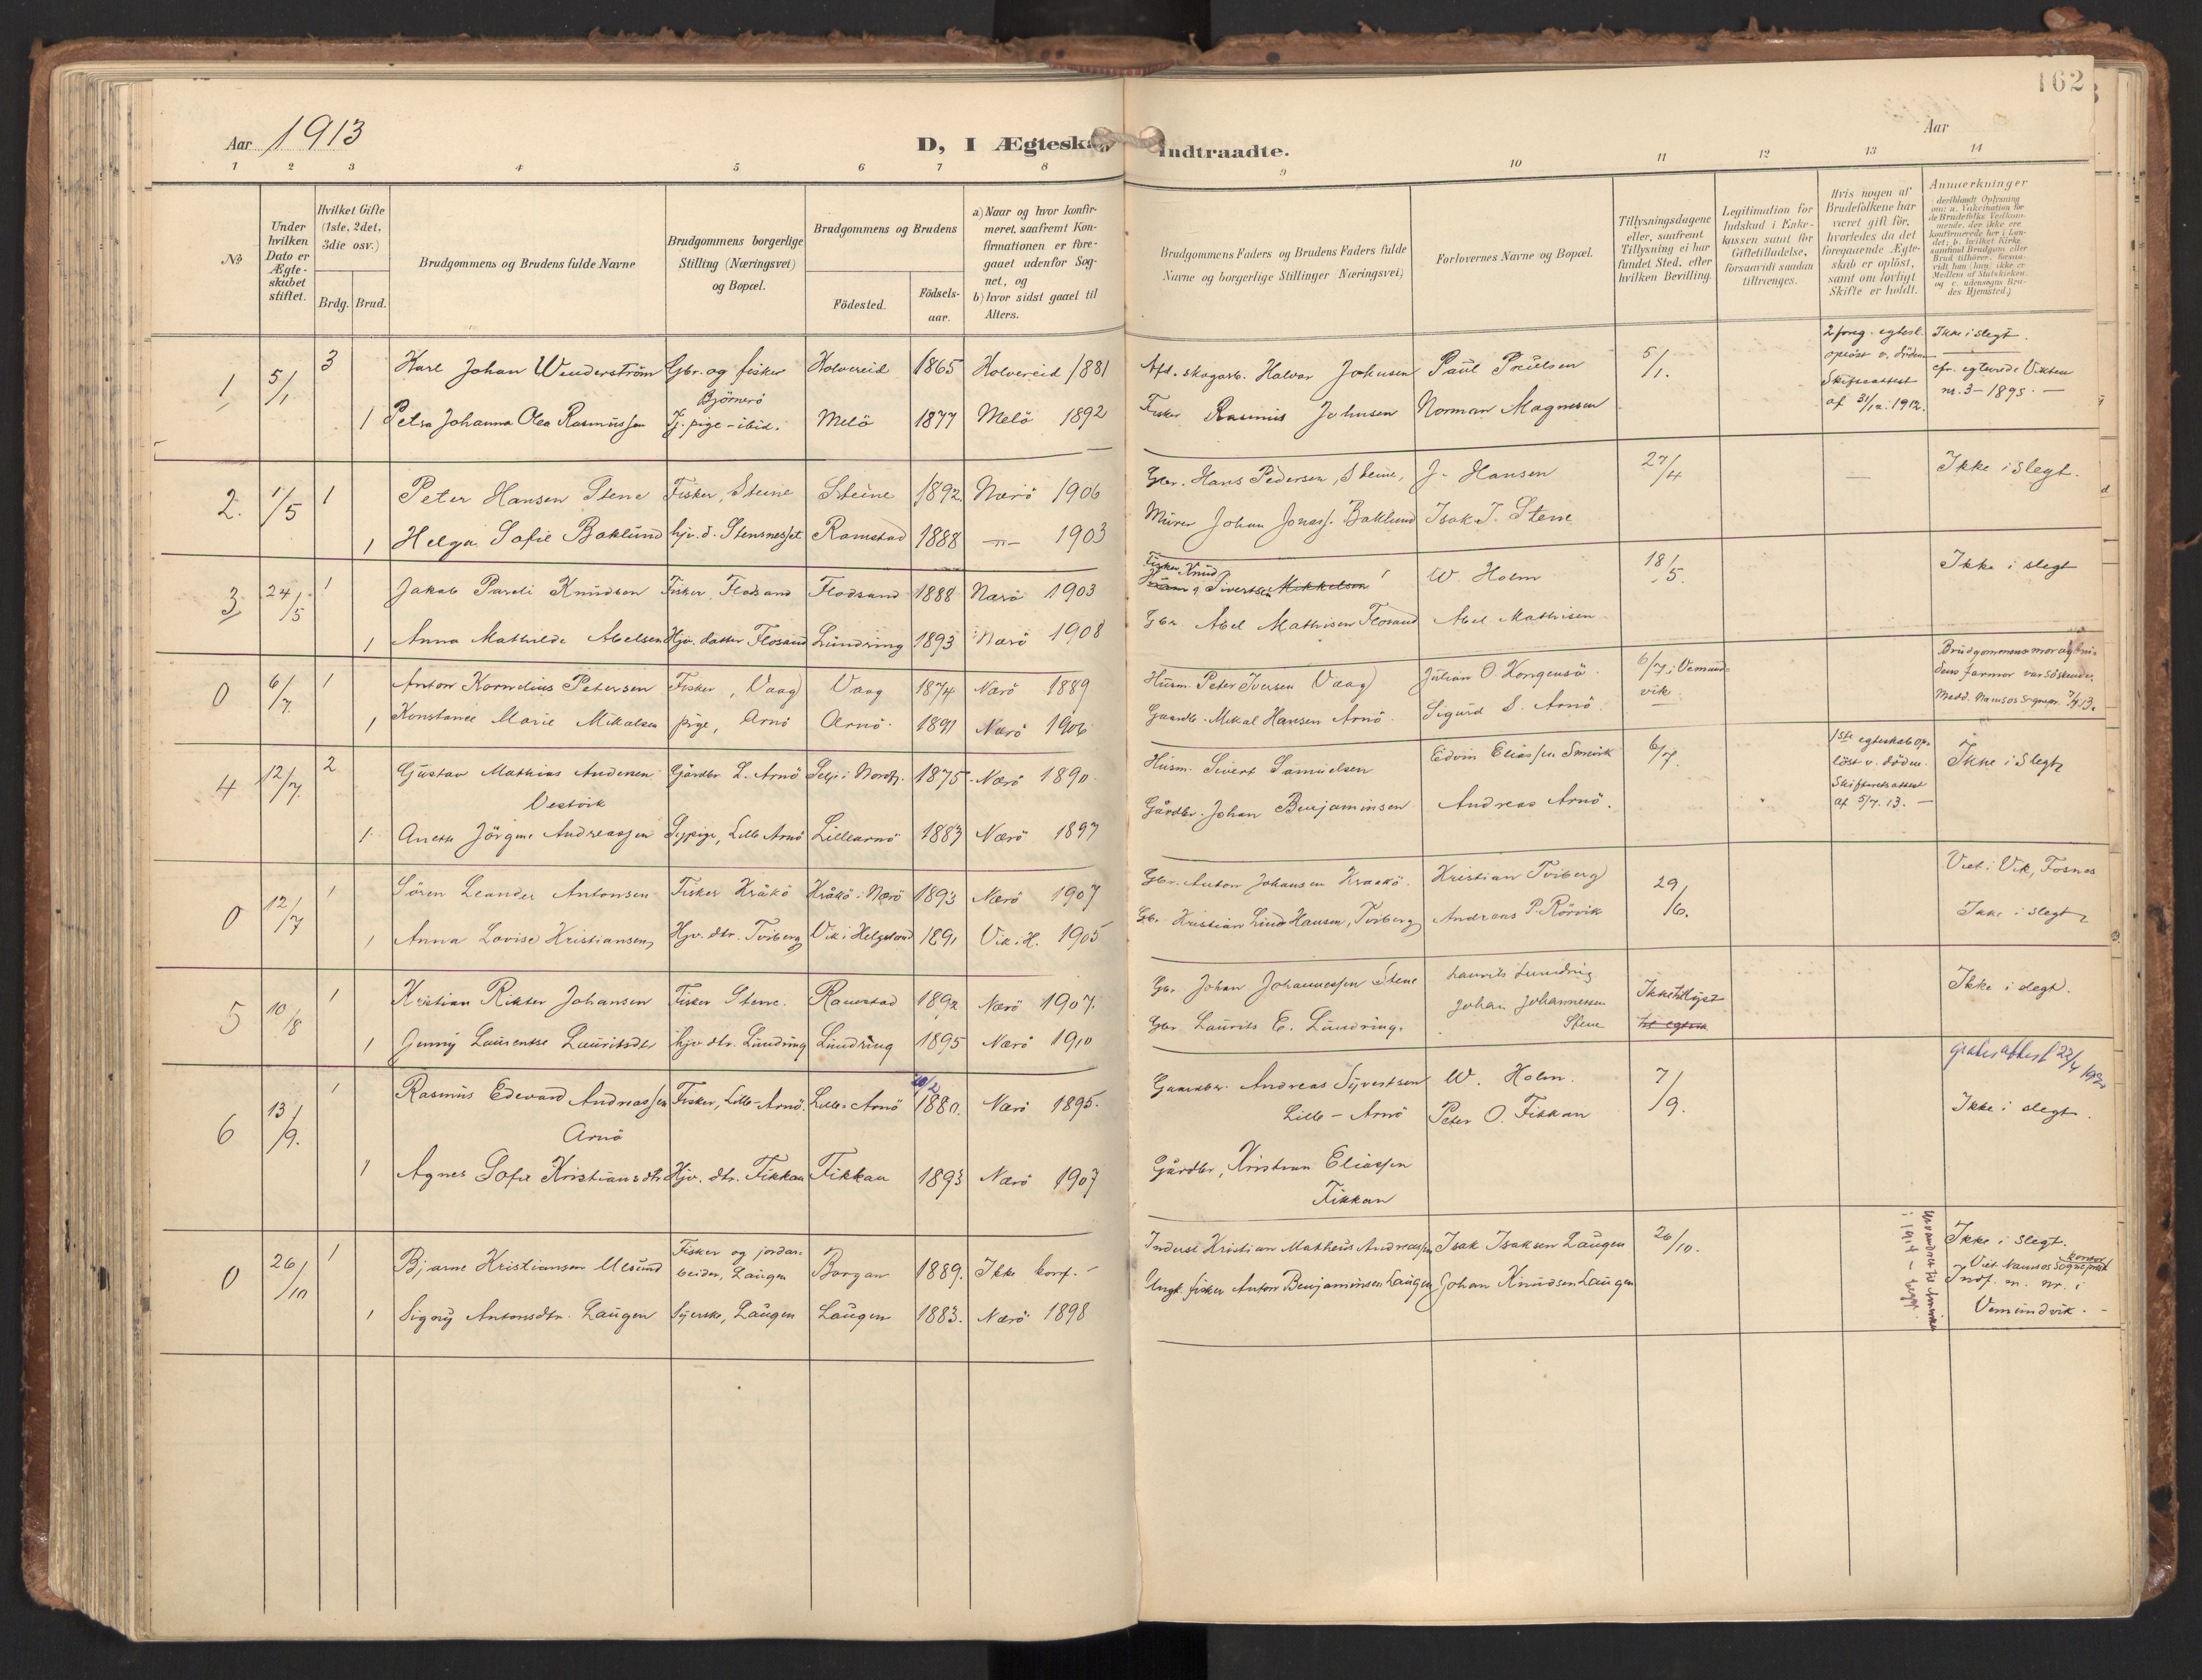 162
Aar 1913
D, I Ægteskab Indtraadte.
Aar
1 2 3 4 5 6 7 8 9 10 11 12 13 14
No
Under hvilken Dato er Ægteskabet stiftet.
Hvilket Gifte (1ste, 2det, 3die osv.)
Brdg. Brud.
Brudgommens og Brudens fulde Navne
Brudgommens borgerlige Stilling (Næringsvei) og Bopæl.
Brudgommens og Brudens
Födested. Födsels-aar.
a) Naar og hvor konfirmeret, saafremt Konfirmationen er foregaaet udenfor Sognet, og b) hvor sidst gaaet til Alters.
Brudgommens Faders og Brudens Faders fulde Navne og borgerlige Stillinger (Næringsvei)
Forlovernes Navne og Bopæl.
Tillysningsdagene eller, saafremt Tillysning ei har fundet Sted, efter hvilken Bevilling.
Legitimation for Indskud i Enkekassen samt for Giftetilladelse, forsaavidt saadan tiltrænges.
Hvis nogen af Brudefolkene har været gift för, hvorledes da det foregaaende Ægteskab er oplöst, samt om lovligt Skifte er holdt.
Anmærkninger
1 5/1 3 Karl Johan Wenderström Gbr. og fisker Kolvereid 1865 Kolvereid 1881 Afd. skogarb. Halvor Johnsen Paul Paulsen 5/1. 2 foreg. egtesk. opløst v. döden Ikke i slegt.
Björnerö
Skifteattest af 31/12. 1912. cfr. egteviede Vikten nr. 3 - 1895. -
1 Petra Johanna Olea Rasmussen Tj. pige - ibid. Melö 1877 Melö 1892 Fisker Rasmus Johnsen Norman Magnesen
2. 1/5 1 Peter Hansen Stene Fisker, Steine Steine 1892 Nærö 1906 Gbr. Hans Pedersen, Steine, J. Hansen 27/4 — Ikke i slegt.
1 Helga Sofie Baklund hjv. d. Stensneset Ramstad 1888 -"- 1903 Murer Johan Jonass. Baklund Isak J. Stene
3 24/5 1 Jakob Pareli Knudsen Fisker, Flosand Flosand 1888 Nærö 1903 Fisker Knud Sivertsen Mikkelsen W. Holm 18/5. Ikke i slegt
1 Anna Mathilde Abelsen Hjv. datter Flosand Lundring 1893 Nærö 1908 Gbr. Abel Mathisen Flosand Abel Mathisen
0 6/7. 1 Anton Kornelius Petersen Fisker, Vaag Vaag 1874 Nærö 1889 Husm. Peter Iversen Vaag Julian O. Kongensö 6/7 i Vemundvik. Brudgommens mor og brudens farmor var söskende. Medd. Namsos sognepr. 7/7 13.
1 Konstance Marie Mikalsen pige, Arnö Arnö. 1891 Nærö 1906 Gaardb. Mikal Hansen Arnö Sigurd S. Arnö
4 12/7. 2 Gustav Mathias Andersen Gårdbr L. Arnö Selje i Nordfj. 1875. Nærö 1890. Husm. Sivert Samuelsen Edvin Eliassen 6/7. 1ste egteskab opløst v. döden. Skifteretsattest af 5/7. 13. — Ikke i slegt
Vestvik
1. Anette Jörgine Andreassen Sypige, Lille Arnö Lillearnö 1883 Nærö 1897 Gårdbr. Johan Benjaminsen Andreas Arnö.
0 12/7 1 Sören Leander Antonsen Fisker Kråkö Kråkö i Nærö 1893 Nærö 1907 Gbr. Anton Johansen Kraakö. Kristian Tviberg 29/6. Viet i Vik, Fosnes
1 Anna Lovise Kristiansen Hjv. dtr. Tviberg Vik i Helgeland 1891 Vik i H. 1905 Gbr. Kristian Lind Hansen, Tviberg Andreas P. Rörvik Ikke i slegt
5 10/8 1 Kristian Rikter Johansen Fisker Stene. Ramstad 1892 Nærö 1907. Gbr. Johan Johannessen Stene Laurits Lundring Ikke tillyst Ikke i slegt.
1 Jenny Laurentse Lauritsdtr hjv dtr. Lundring Lundring 1895 Nærö 1910 Gbr Laurits E. Lundring. Johan Johannessen Stene
6 13/9. 1 Rasmus Edevard Andreassen Fisker, Lille-Arnö. Lille-Arnö 20/2 1880. Nærö 1895. Gaardbr. Andreas Syvertsen W. Holm. 7/9. gratis attest 22/4
Arnö Lille-Arnö Peter O. Fikkan Ikke i slegt.
1 Agnes Sofie Kristiansdtr Hjv. dtr. Fikkan Fikkan 1893 Nærö 1907 Gårdbr. Kristian Eliassen
Fikkan
0 26/10 1 Bjarne Kristiansen Ulsund Fisker og jordarbeider, Laugen Borgan 1889. Ikke konf. - Inderst Kristian Matheus Andreassen Isak Isaksen Laugen 26/10. utvandret til Amerika i 1914 - Ikke i slegt. Viet Namsos sogneprestkontor Indf. m. nr. i Vemundvik. -
1 Signy Antonsdtr. Laugen Syerske, Laugen Laugen 1883. Nærö 1898 Ungk. fisker Anton Benjaminsen Laugen Johan Knudsen Laugen